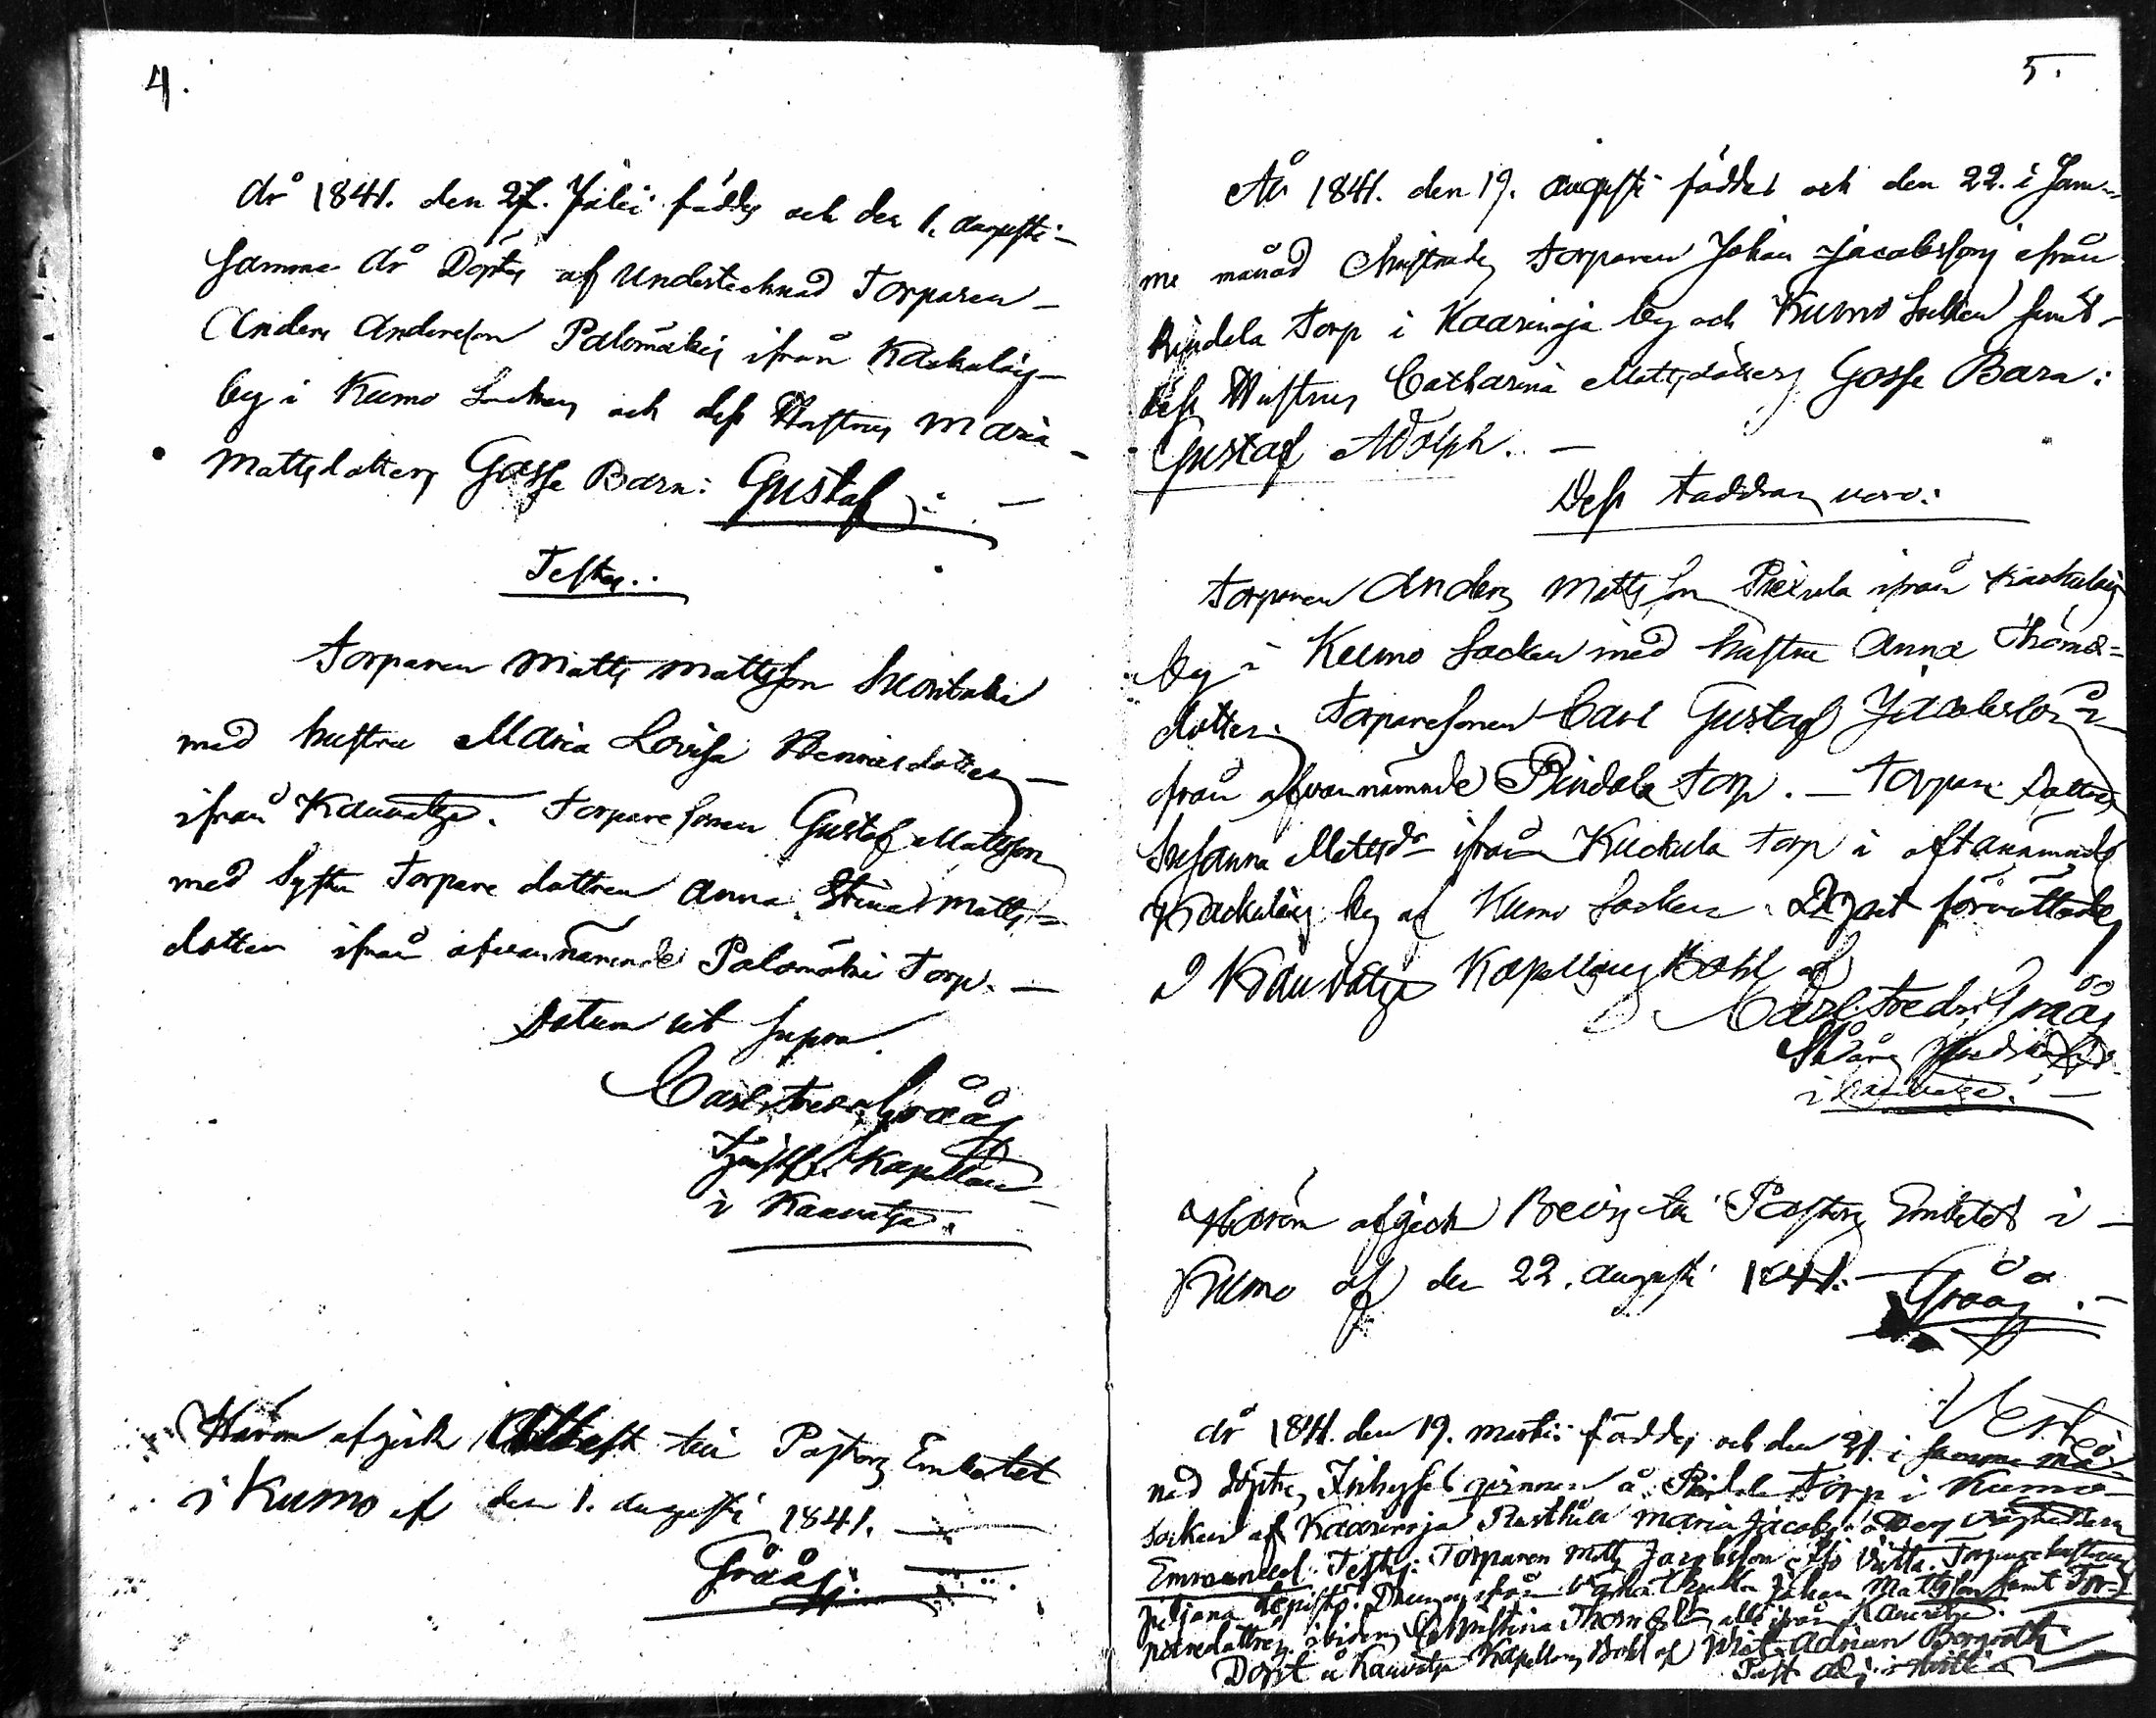 4.
år 1841. den 27. Julii föddes och den 1. augusti
samma år Döptes af Undertecknad Torparen
Anders Andersson Palomäkis ifrån Kackulais
by i Kumo Socken och dess Hustrus Maria
Mattsdotters Gosse Barn: Gustaf.
Testes..
Torparen Matts Mattsson
med hustru Maria Lovisa Henricsdotter
ifrån Kauvatsa. Torpare sonen Gustaf Mattsson
med Syster Torpare dottren Anna Stina Matts=
dotter ifrån ofvannämnde Palomäki Torp.
Datum ut Supra
Carl Fredr. Gråås
Tjenstf. Kapellan
i Kauvatsa.
Härom afgick Attest till Pastors Embetet
i Kumo af den 1. augusti 1841.
Gråås.
5.
År 1841. den 19. augusti föddes och den 22. i Sam=
me månad Christnades torparen Johan Jacobssons ifrån
Rindala torp i Kaarenoja by och Kumo Socken samt
dess Hustrus Catharina Mattsdotters Gosse Barn:
Gustaf Adolph.
Dess Faddrar voro:
torparen Anders Mattsson ifrån Kackulais
by i Kumo Socken med hustru Anna Thoma=
dotter. Torparesonen Carl Gustaf Jacobsson
från ofvannämnde Rindala torp. Torpare Dottren
Susanna Mattsdr ifrån Kuckula torp i oftanämnde
Kackulais by af Kumo Socken. Dopet förrättades
å Kauvatsa Kapellans Bohl af
Carl Fredr. Gråås
i Kauvatsa.
Härom afgick Bevis till Pastors Embetet i
Kumo af den 22. augusti 1841.
Gråås.
Vert
år 1841. den 19. martii föddes och den 21. i samma må=
nad döptes Inhyses qvinnan å Rindala Torp i Kumo
Socken af Kaarenoja Rusthåll Maria Jacobsdotters
Emmanuel. Testes: Torparen Matts Jacobsson
Johan Mattsson samt Tor=
paredottren ibidem Christina Thomasdr, alle ifrån Kauvatsa.
Döpt å Kauvatsa Kapellans Bohl af Adrian Bergroth
Past. Adj. i